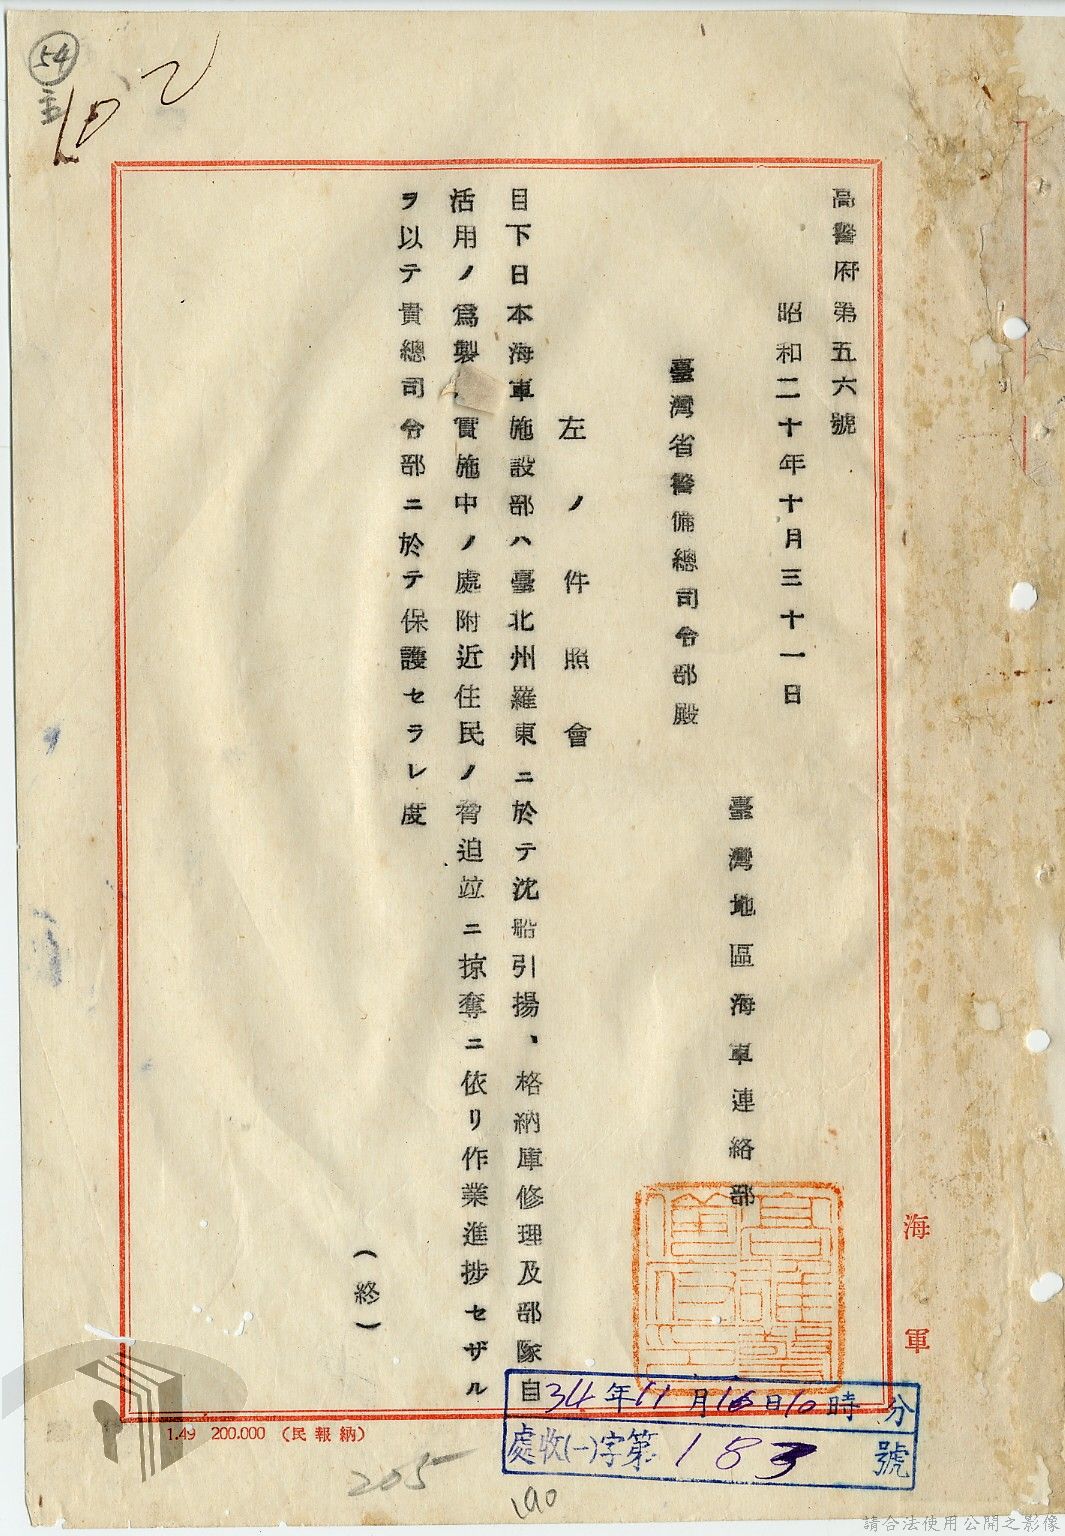 高警府第五六號
昭和二十年十月三十一日
臺灣地區海軍連絡部
臺灣省警備總司令部殿
左ノ件照會
目下日本海軍施設部ハ臺北州羅東ニ於テ沈船引揚、格納庫修理及部隊自
活用ノ爲製 實施中ノ處附近住民ノ脅迫竝ニ掠奪ニ依リ作業進捗セザル
ヲ以テ貴總司令部ニ於テ保護セラレ度
(終)
海軍
高雄警備府印
34年11月16日10時 分
處收(一)字第183號
1.49 200.000 (民報納)
54
205
190
請合法使用公開之影像